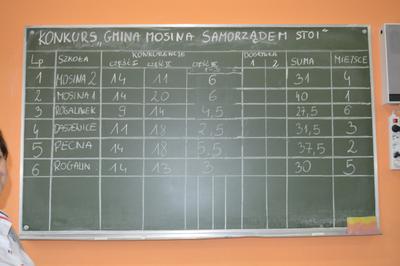 KONKURS „GMINA MOSINA SAMORZĄDEM STOI"
Lp SZKOŁA KONKURENCJE DOGRYWKA SUMA MIEJSCE
CZĘŚĆ I CZĘŚĆ II CZĘŚĆ III 1 2
1 MOSINA 2 14 11 6 31 4
2 MOSINA 1 14 20 6 40 1
3 ROGALINEK 9 14 4,5 27,5 6
4 DASZEWICE 11 18 2,5 31,5 3
5 PECNA 14 18 5,5 37,5 2
6 ROGALIN 14 13 3 30 5